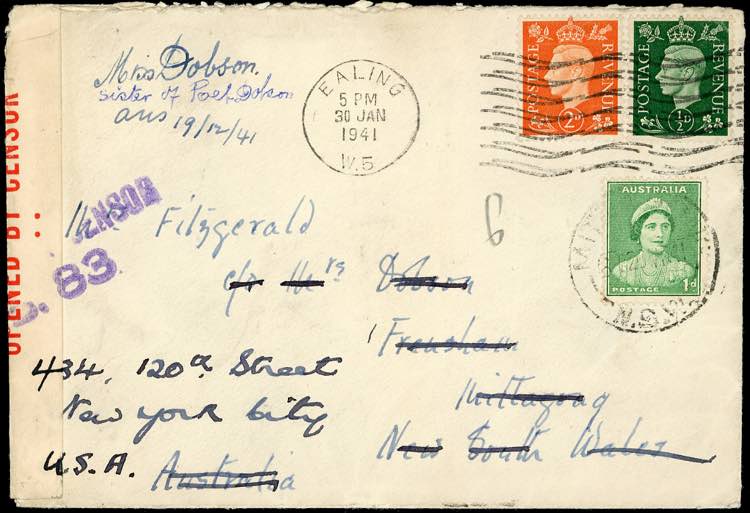 Miss Dobson.
Sister of Poet Dobson
ans 19/12/41
EALING
5 PM
30 JAN
1941
W.5
POSTAGE REVENUE
2D
POSTAGE REVENUE
½D
AUSTRALIA
POSTAGE 1d
N.S.W
OPENED BY CENSOR
CENSOR
83
6
Fitzgerald
c/o Mrs Dobson
Frensham
Mittagong
New South Wales
Australia
434, 120th Street
New York City
U.S.A.